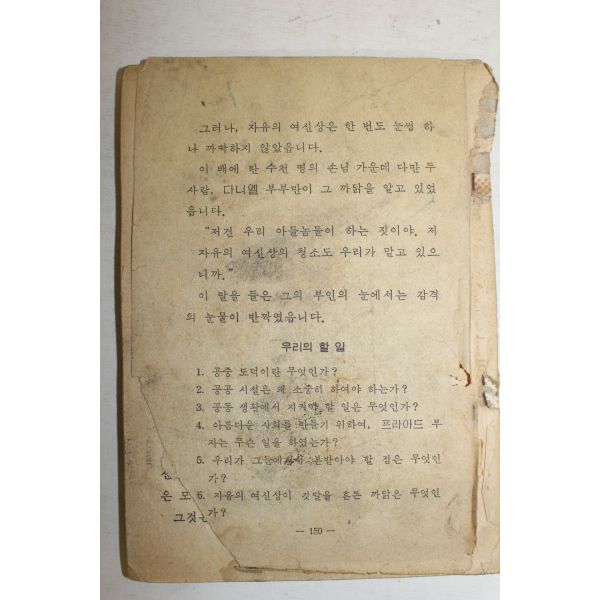 그러나, 자유의 여신상은 한 번도 눈썹 하
나 까딱하지 않았읍니다.
이 배에 탄 수천 명의 손님 가운데 다만 두
사람, 다니엘 부부만이 그 까닭을 알고 있었
읍니다.
"저건 우리 아들놈들이 하는 짓이야. 저
자유의 여신상의 청소도 우리가 맡고 있으
니까."
이 말을 들은 그의 부인의 눈에서는 감격
의 눈물이 반짝였읍니다.
우리의 할 일
1. 공중 도덕이란 무엇인가?
2. 공공 시설은 왜 소중히 하여야 하는가?
3. 공동 생활에서 지켜야 할 일은 무엇인가?
4. 아름다운 사회를 만들기 위하여, 프라아드 부
자는 무슨 일을 하였는가?
5. 우리가 그들에게서 본받아야 할 점은 무엇인
가?
은 모 6. 자유의 여신상이 깃발을 흔든 까닭은 무엇인
그것은 가?
— 150 —